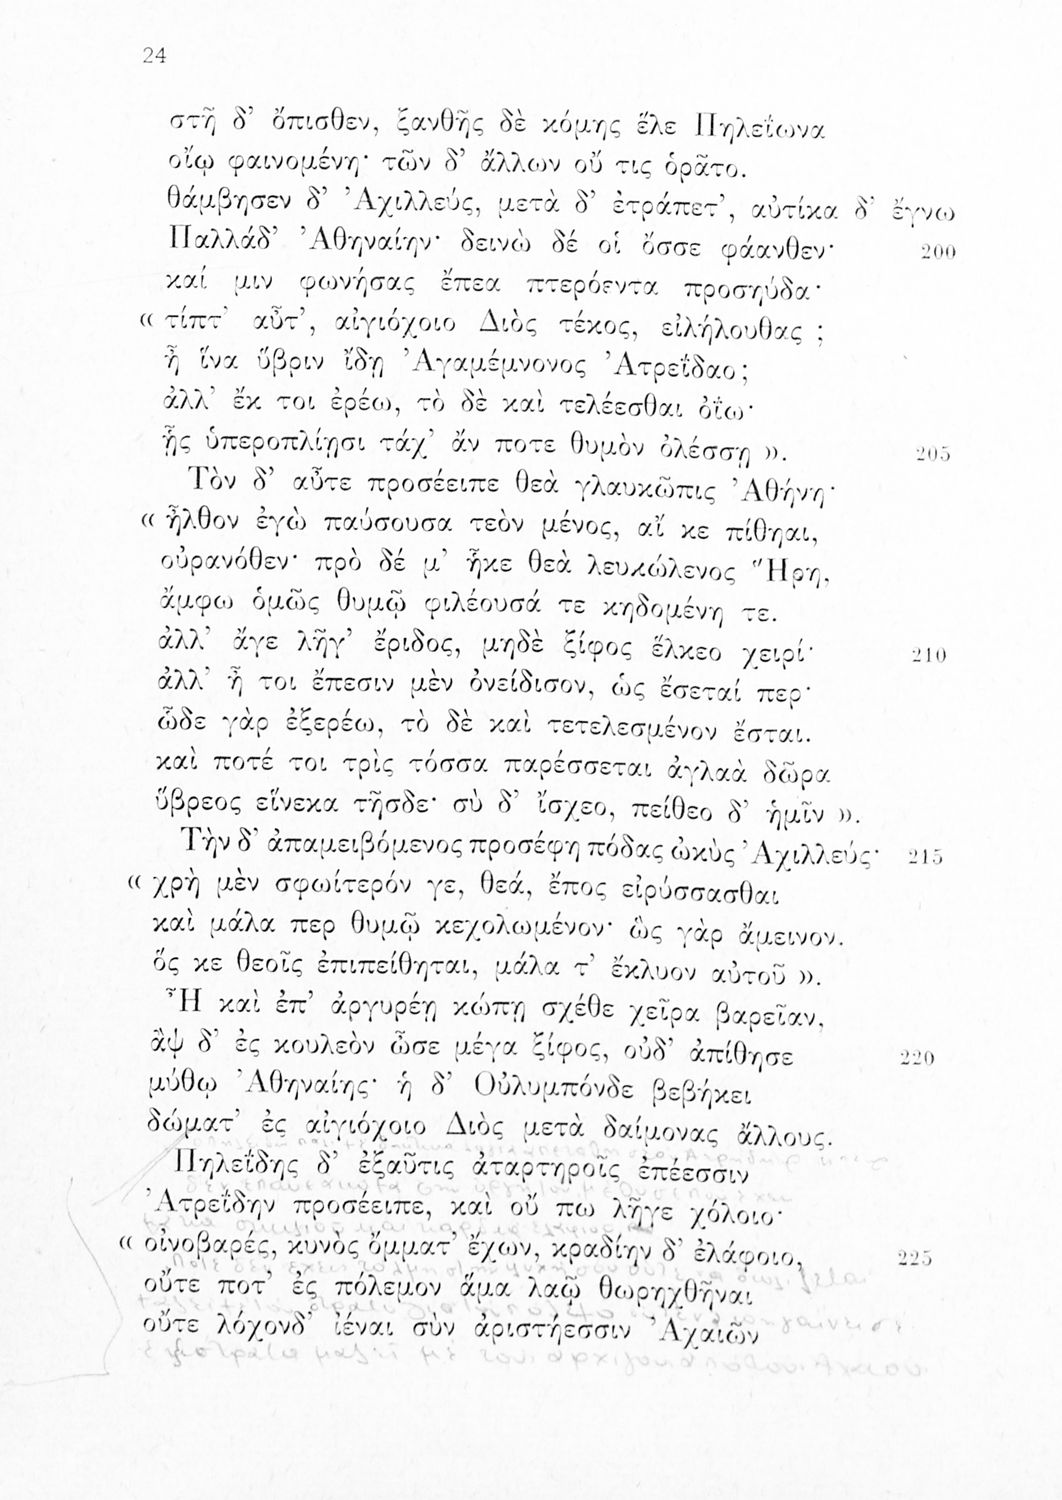 24
στῆ δ’ ὄπισθεν, ξανθῆς δὲ κόμης ἕλε Πηλεΐωνα
οἴῳ φαινομένη· τῶν δ’ ἄλλων οὔ τις ὁρᾶτο.
θάμβησεν δ’ Ἀχιλλεύς, μετὰ δ’ ἐτράπετ’, αὐτίκα δ’ ἔγνω
Παλλάδ’ Ἀθηναίην· δεινὼ δέ οἱ ὄσσε φάανθεν· 200
καί μιν φωνήσας ἔπεα πτερόεντα προσηύδα·
« τίπτ’ αὖτ’, αἰγιόχοιο Διὸς τέκος, εἰλήλουθας ;
ἦ ἵνα ὕβριν ἴδῃ Ἀγαμέμνονος Ἀτρεΐδαο;
ἀλλ’ ἔκ τοι ἐρέω, τὸ δὲ καὶ τελέεσθαι ὀΐω·
ᾗς ὑπεροπλίῃσι τάχ’ ἄν ποτε θυμὸν ὀλέσσῃ ». 205
Τὸν δ’ αὖτε προσέειπε θεὰ γλαυκῶπις Ἀθήνη·
« ἦλθον ἐγὼ παύσουσα τεὸν μένος, αἴ κε πίθηαι,
οὐρανόθεν· πρὸ δέ μ’ ἧκε θεὰ λευκώλενος Ἥρη,
ἄμφω ὁμῶς θυμῷ φιλέουσά τε κηδομένη τε.
ἀλλ’ ἄγε λῆγ’ ἔριδος, μηδὲ ξίφος ἕλκεο χειρί· 210
ἀλλ’ ἦ τοι ἔπεσιν μὲν ὀνείδισον, ὡς ἔσεταί περ·
ὧδε γὰρ ἐξερέω, τὸ δὲ καὶ τετελεσμένον ἔσται.
καὶ ποτέ τοι τρὶς τόσσα παρέσσεται ἀγλαὰ δῶρα
ὕβρεος εἵνεκα τῆσδε· σὺ δ’ ἴσχεο, πείθεο δ’ ἡμῖν ».
Τὴν δ’ ἀπαμειβόμενος προσέφη πόδας ὠκὺς Ἀχιλλεύς· 215
« χρὴ μὲν σφωίτερόν γε, θεά, ἔπος εἰρύσσασθαι
καὶ μάλα περ θυμῷ κεχολωμένον· ὣς γὰρ ἄμεινον.
ὅς κε θεοῖς ἐπιπείθηται, μάλα τ’ ἔκλυον αὐτοῦ ».
Ἦ καὶ ἐπ’ ἀργυρέῃ κώπῃ σχέθε χεῖρα βαρεῖαν,
ἂψ δ’ ἐς κουλεὸν ὦσε μέγα ξίφος, οὐδ’ ἀπίθησε 220
μύθῳ Ἀθηναίης· ἡ δ’ Οὐλυμπόνδε βεβήκει
δώματ’ ἐς αἰγιόχοιο Διὸς μετὰ δαίμονας ἄλλους.
Πηλεΐδης δ’ ἐξαῦτις ἀταρτηροῖς ἐπέεσσιν
Ἀτρεΐδην προσέειπε, καὶ οὔ πω λῆγε χόλοιο·
« οἰνοβαρές, κυνὸς ὄμματ’ ἔχων, κραδίην δ’ ἐλάφοιο, 225
οὔτε ποτ’ ἐς πόλεμον ἅμα λαῷ θωρηχθῆναι
οὔτε λόχονδ’ ἰέναι σὺν ἀριστήεσσιν Ἀχαιῶν